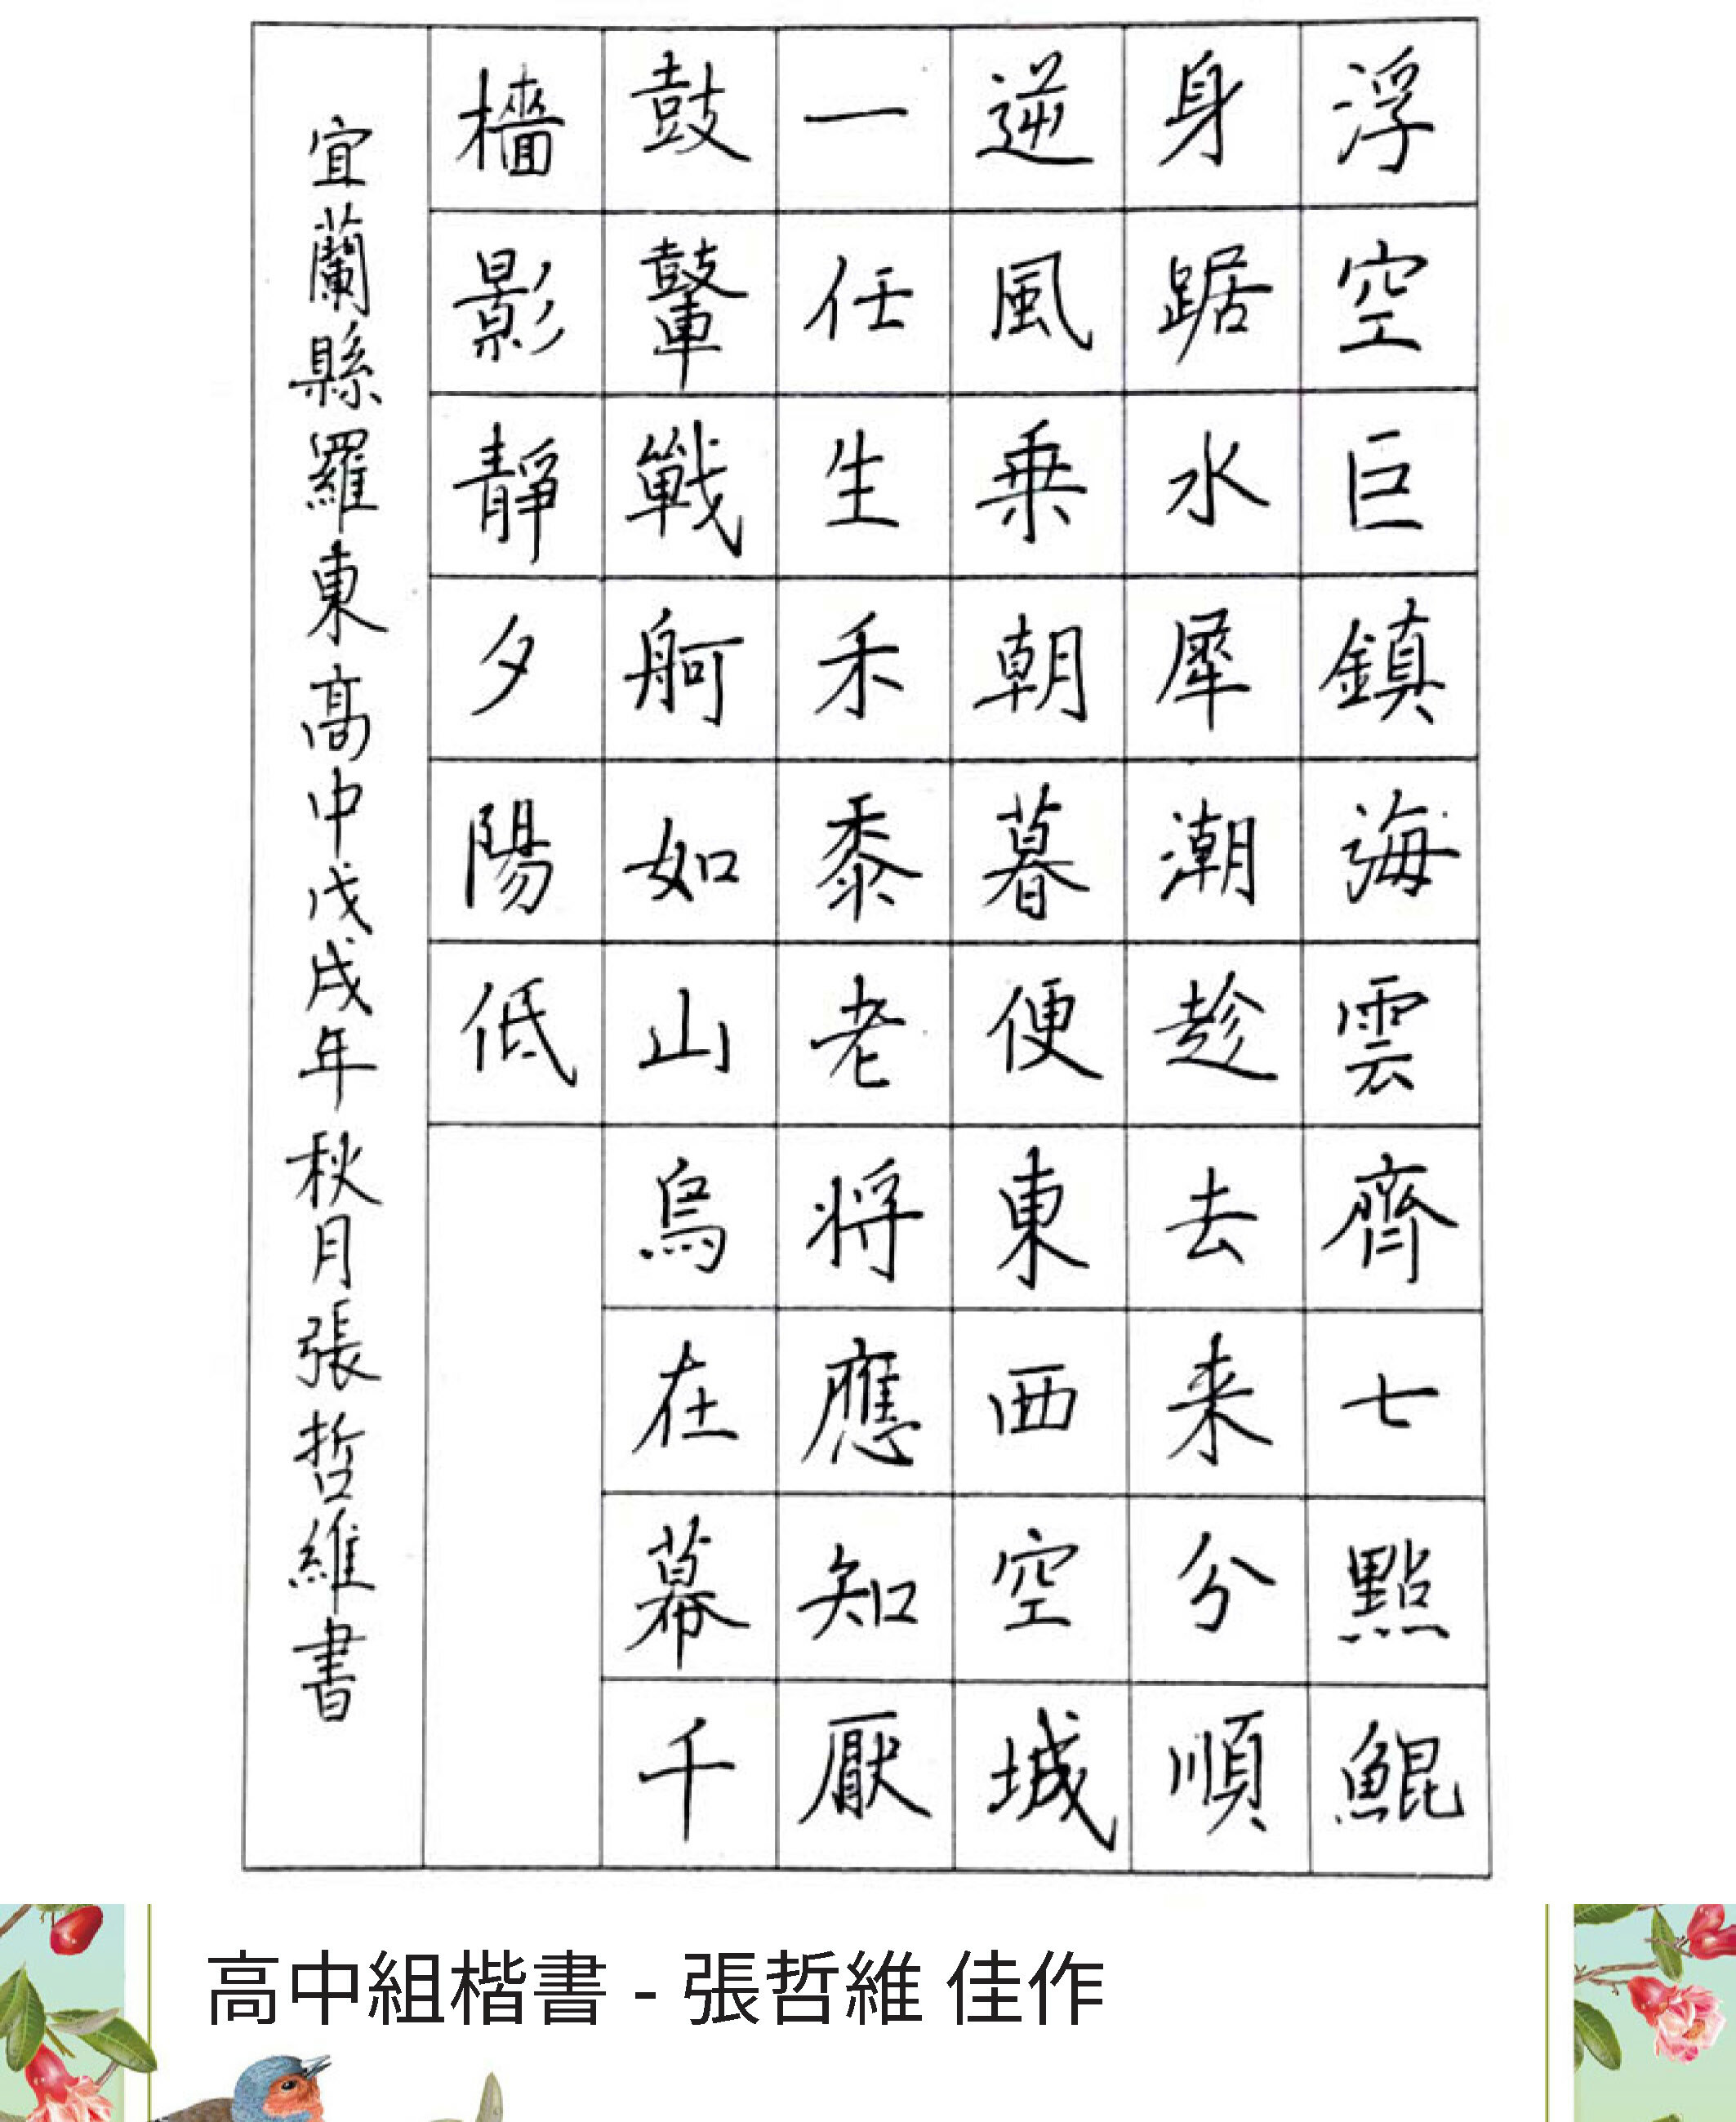 浮空巨鎮海雲齊七點鯤
身踞水犀潮趁去来分順
逆風乗朝暮便東西空城
一任生禾黍老将應知厭
鼓鼙戰舸如山烏在幕千
檣影靜夕陽低
宜蘭縣羅東高中戊戌年秋月張哲維書
高中組楷書 - 張哲維 佳作